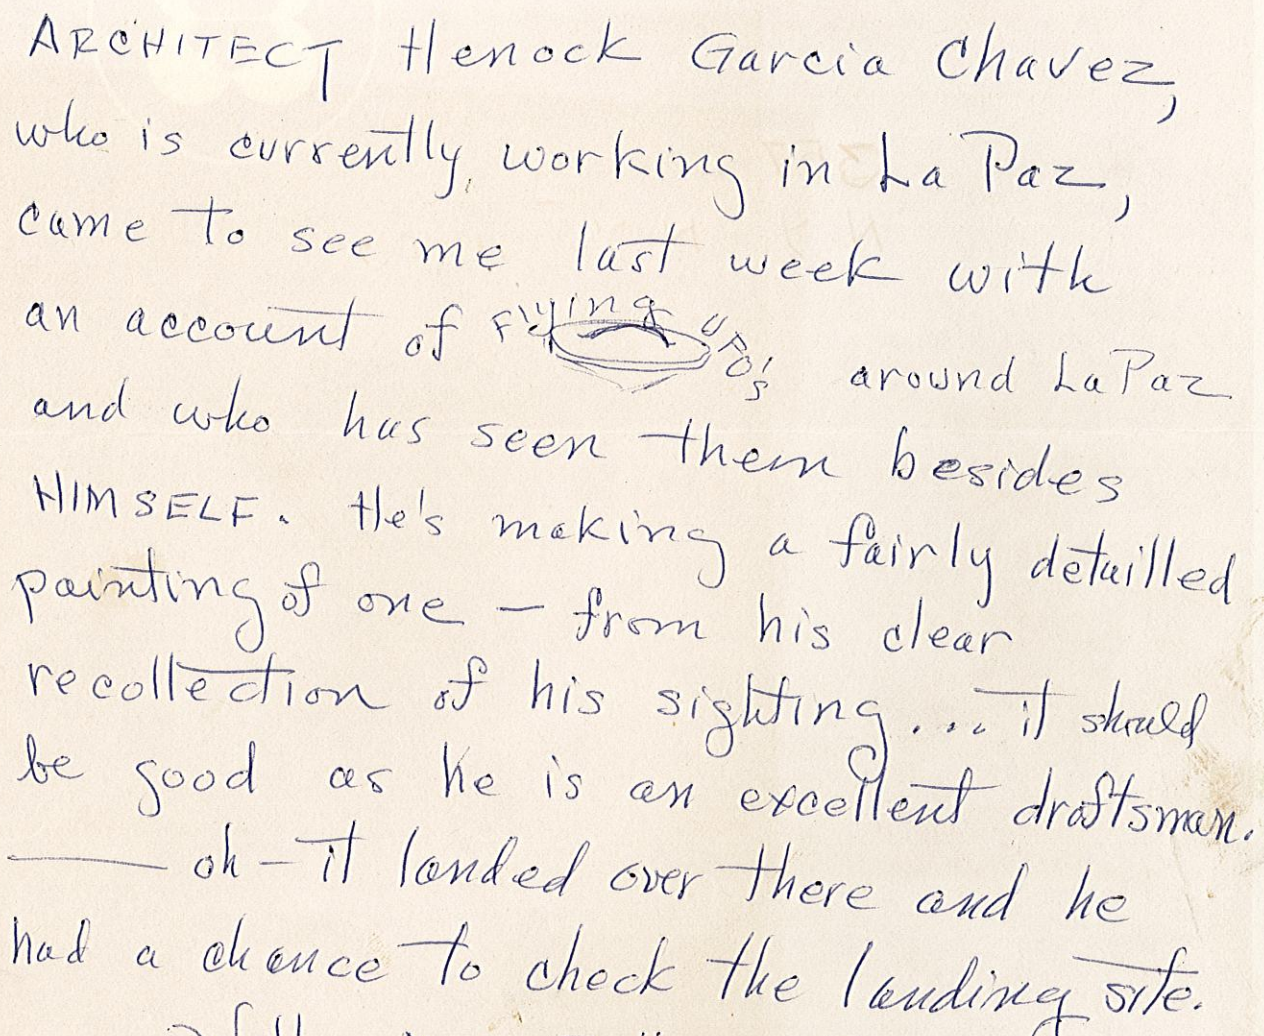 ARCHITECT Henock Garcia Chavez,
who is currently working in La Paz,
came to see me last week with
an account of Flying UFO's around La Paz
and who has seen them besides
HIMSELF. He's making a fairly detailled
painting of one — from his clear
recollection of his sighting.... it should
be good as he is an excellent draftsman.
—— oh - it landed over there and he
had a chance to check the landing site.